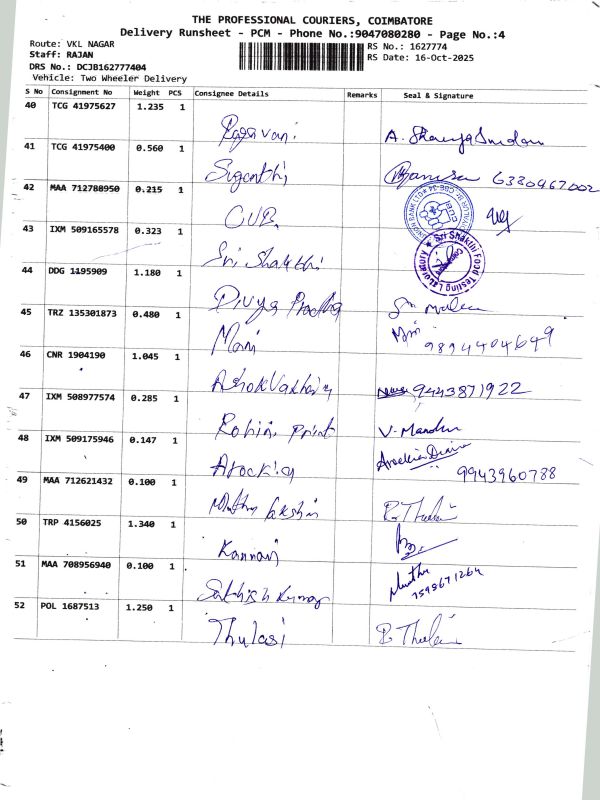 THE PROFESSIONAL COURIERS, COIMBATORE
Delivery Runsheet - PCM - Phone No.:9047080280 - Page No.:4
Route: VKL NAGAR
RS No.: 1627774
Staff: RAJAN
RS Date: 16-Oct-2025
DRS No.: DCJB162777404
Vehicle: Two Wheeler Delivery
S No Consignment No Weight PCS Consignee Details Remarks Seal & Signature
40 TCG 41975627 1.235 1
Ragavani
41 TCG 41975400 0.560 1
Suganthi 6380967002
42 MAA 712788950 0.215 1
CUB
43 IXM 509165578 0.323 1
Sri Shakthi Sri Shakthi Food Testing Laboratory
44 DDG 1195909 1.180 1
Divya Pradha
45 TRZ 135301873 0.480 1
Mani 9894404649
46 CNR 1904190 1.045 1
9443871922
47 IXM 508977574 0.285 1
Rohini print V. Mandhu
48 IXM 509175946 0.147 1
Arockiya 9943960788
49 MAA 712621432 0.100 1
R. Thulasi
50 TRP 4156025 1.340 1
Kannan
51 MAA 708956940 0.100 1
Sathish Kumar Muthu
7595671264
52 POL 1687513 1.250 1
Thulasi R. Thulasi